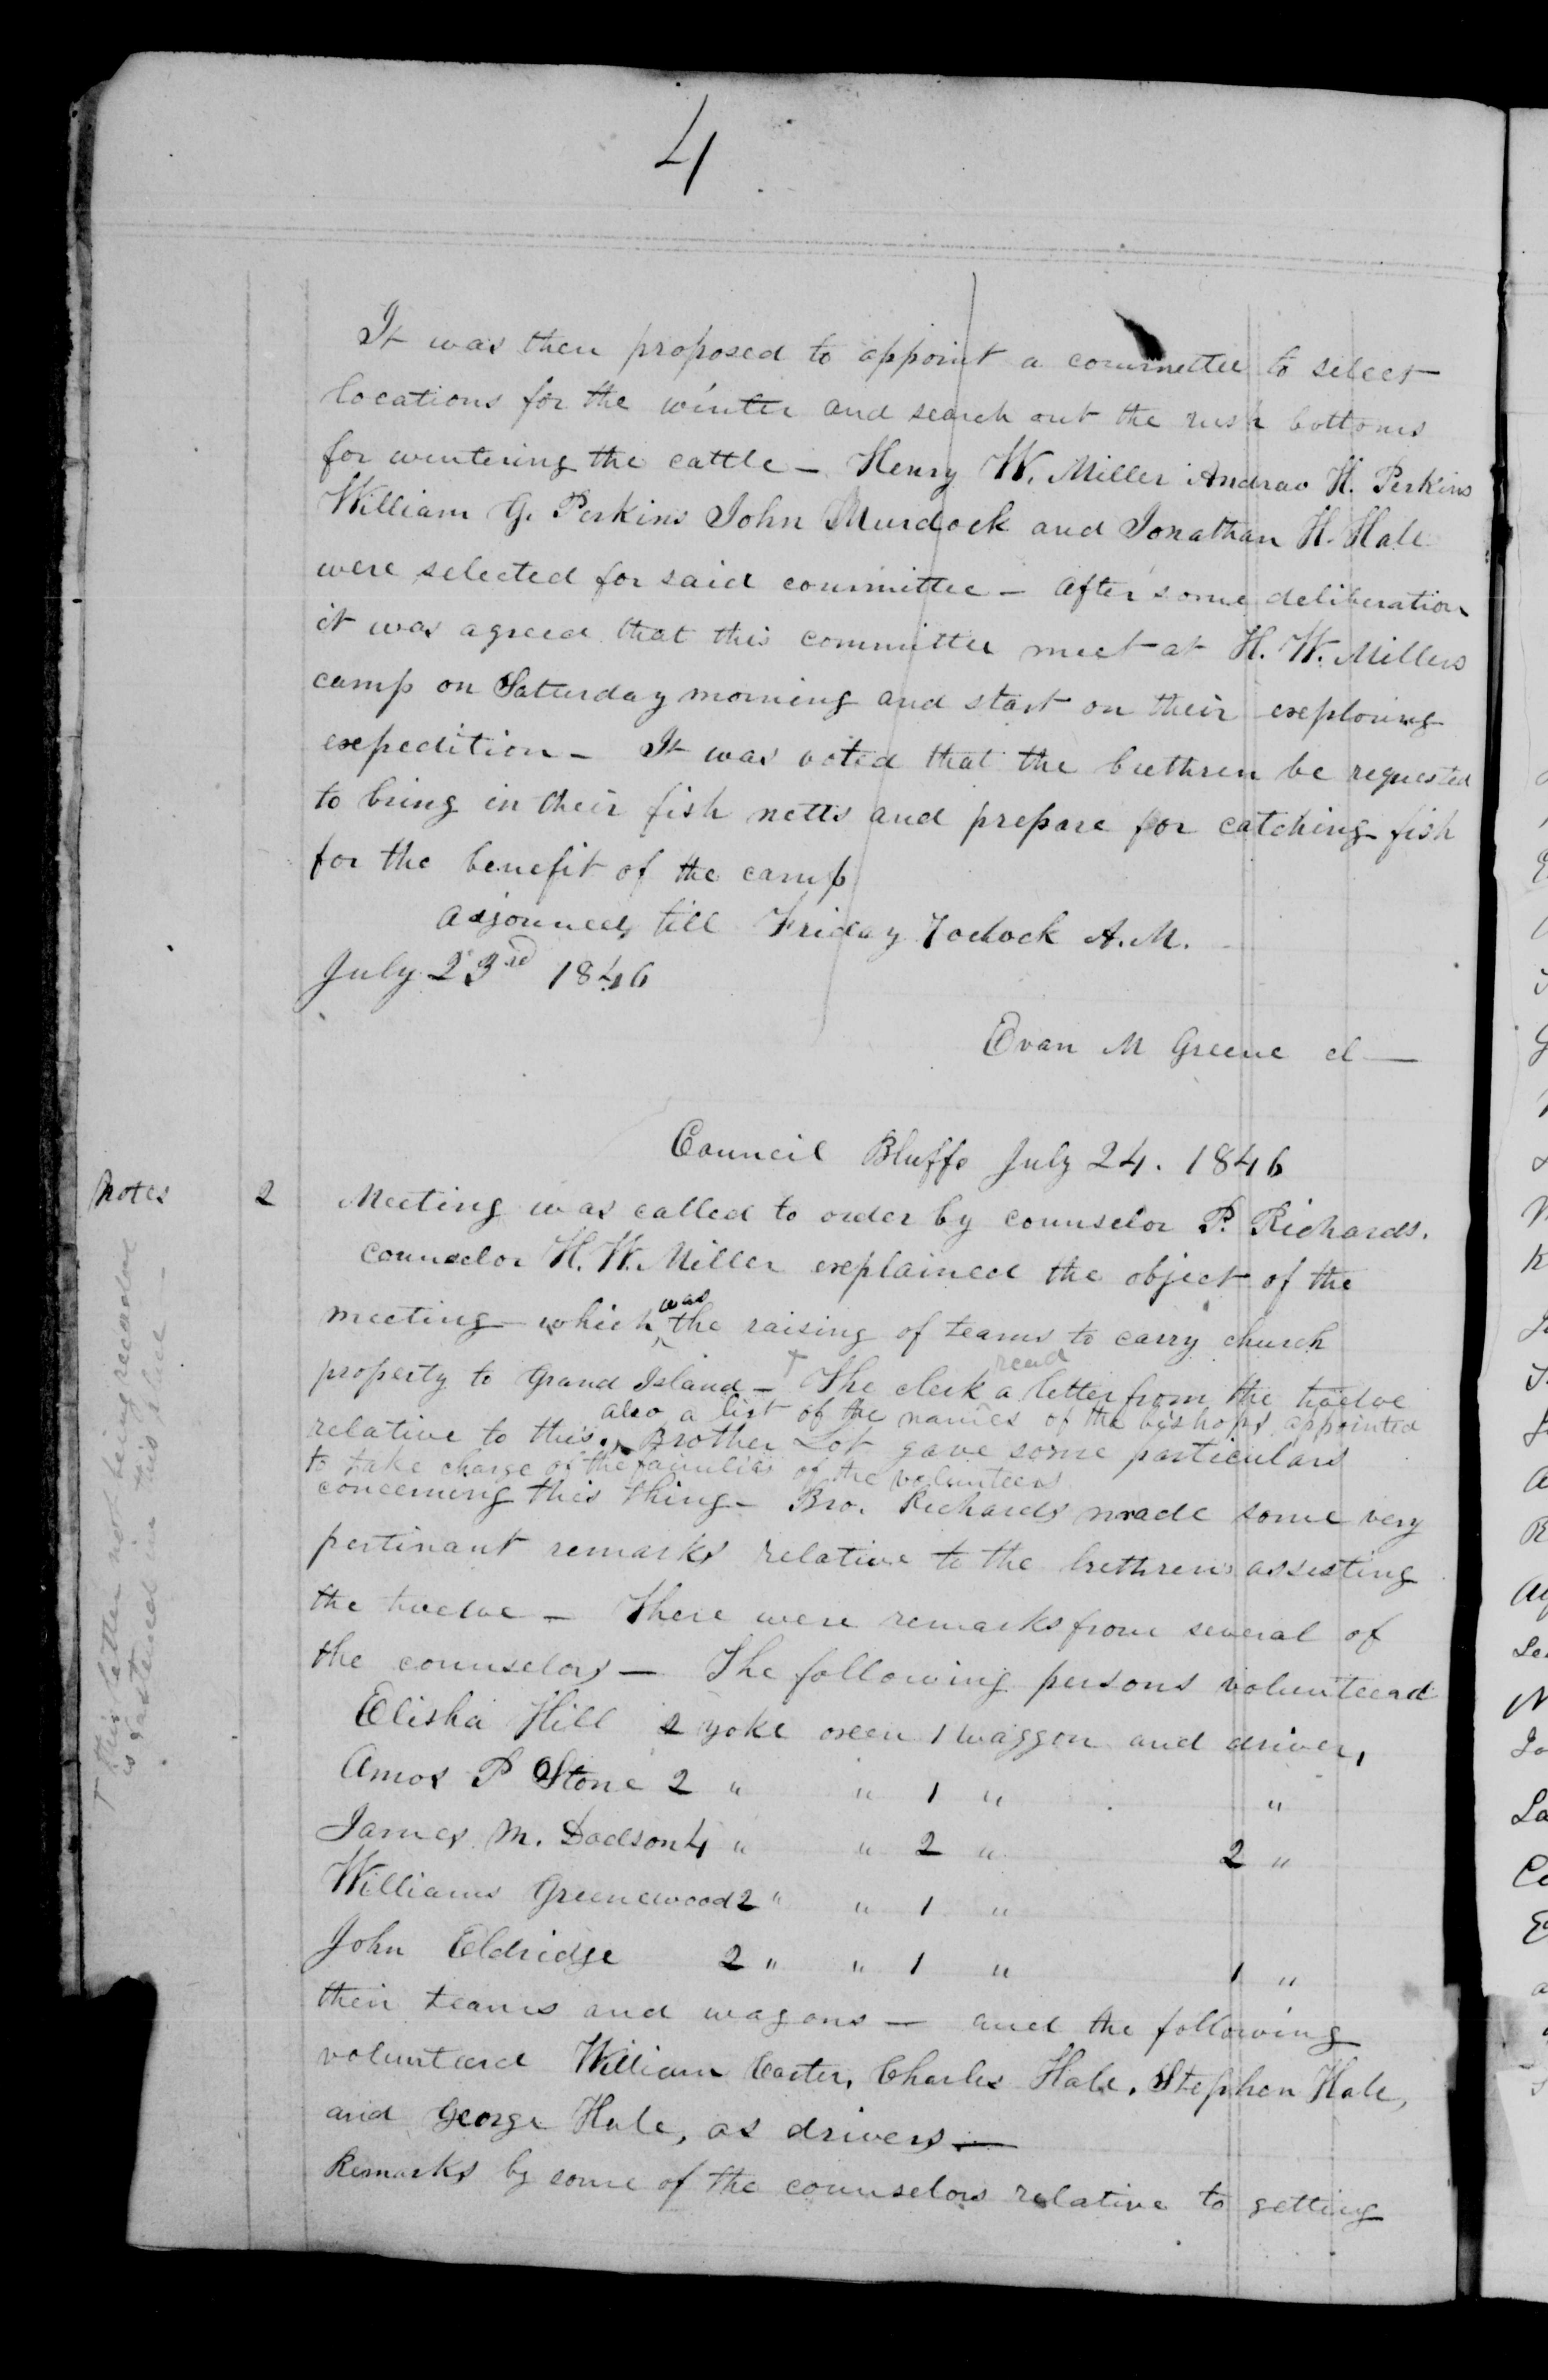 4
It was then proposed to appoint a committee to select
locations for the winter and search out the rush bottoms
for wintering the cattle - Henry W. Miller Andrao H. Perkins
William G. Perkins John Murdock and Jonathan H. Hale
were selected for said committee - After some deliberation
it was agreed that this committee meet at H. W. Millers
camp on Satterday morning and start on their exploring
expedition - It was voted that the brethren be requested
to bring in their fish netts and prepare for catching fish
for the benefit of the camp
adjourned till Friday 7 oclock A.M.
July 23rd 1846
Evan M Greene cl -
Council Bluffs July 24. 1846
Notes 2 Meeting was called to order by counselor P. Richards.
counselor H. W. Miller explained the object of the
was
meeting which ^ the raising of teams to carry church
read
property to Grand Island - † The clerk a letter from the twelve
also a list of the names of the bishops appointed
relative to this. ^ Brother Lot gave some particulars
to take charge of the families of the volunteers
concerning this thing - Bro. Richards made some very
pertinant remarks relative to the brethren assisting
the twelve - There were remarks from several of
the counselors - The following persons volunteerd
Elisha Hill 2 yoke oxen 1 waggon and driver,
Amos P Stone 2 " " 1 " "
James M. Dodson 4 " " 2 " 2 "
Williams Greenewood 2 " " 1 "
John Eldridge 2 " " 1 " 1 "
their teams and wagons - and the following
volunteerd William Carter, Charles Hale, Stephen Hale,
and George Hale, as drivers -
Remarks by some of the counselors relative to getting
† this letter not being recorded
is fastened in this place -